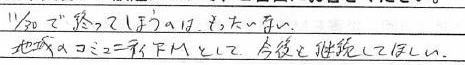 11/30で終ってしまうのは、もったいない。
地域のコミュニティFMとして、今後も継続してほしい。